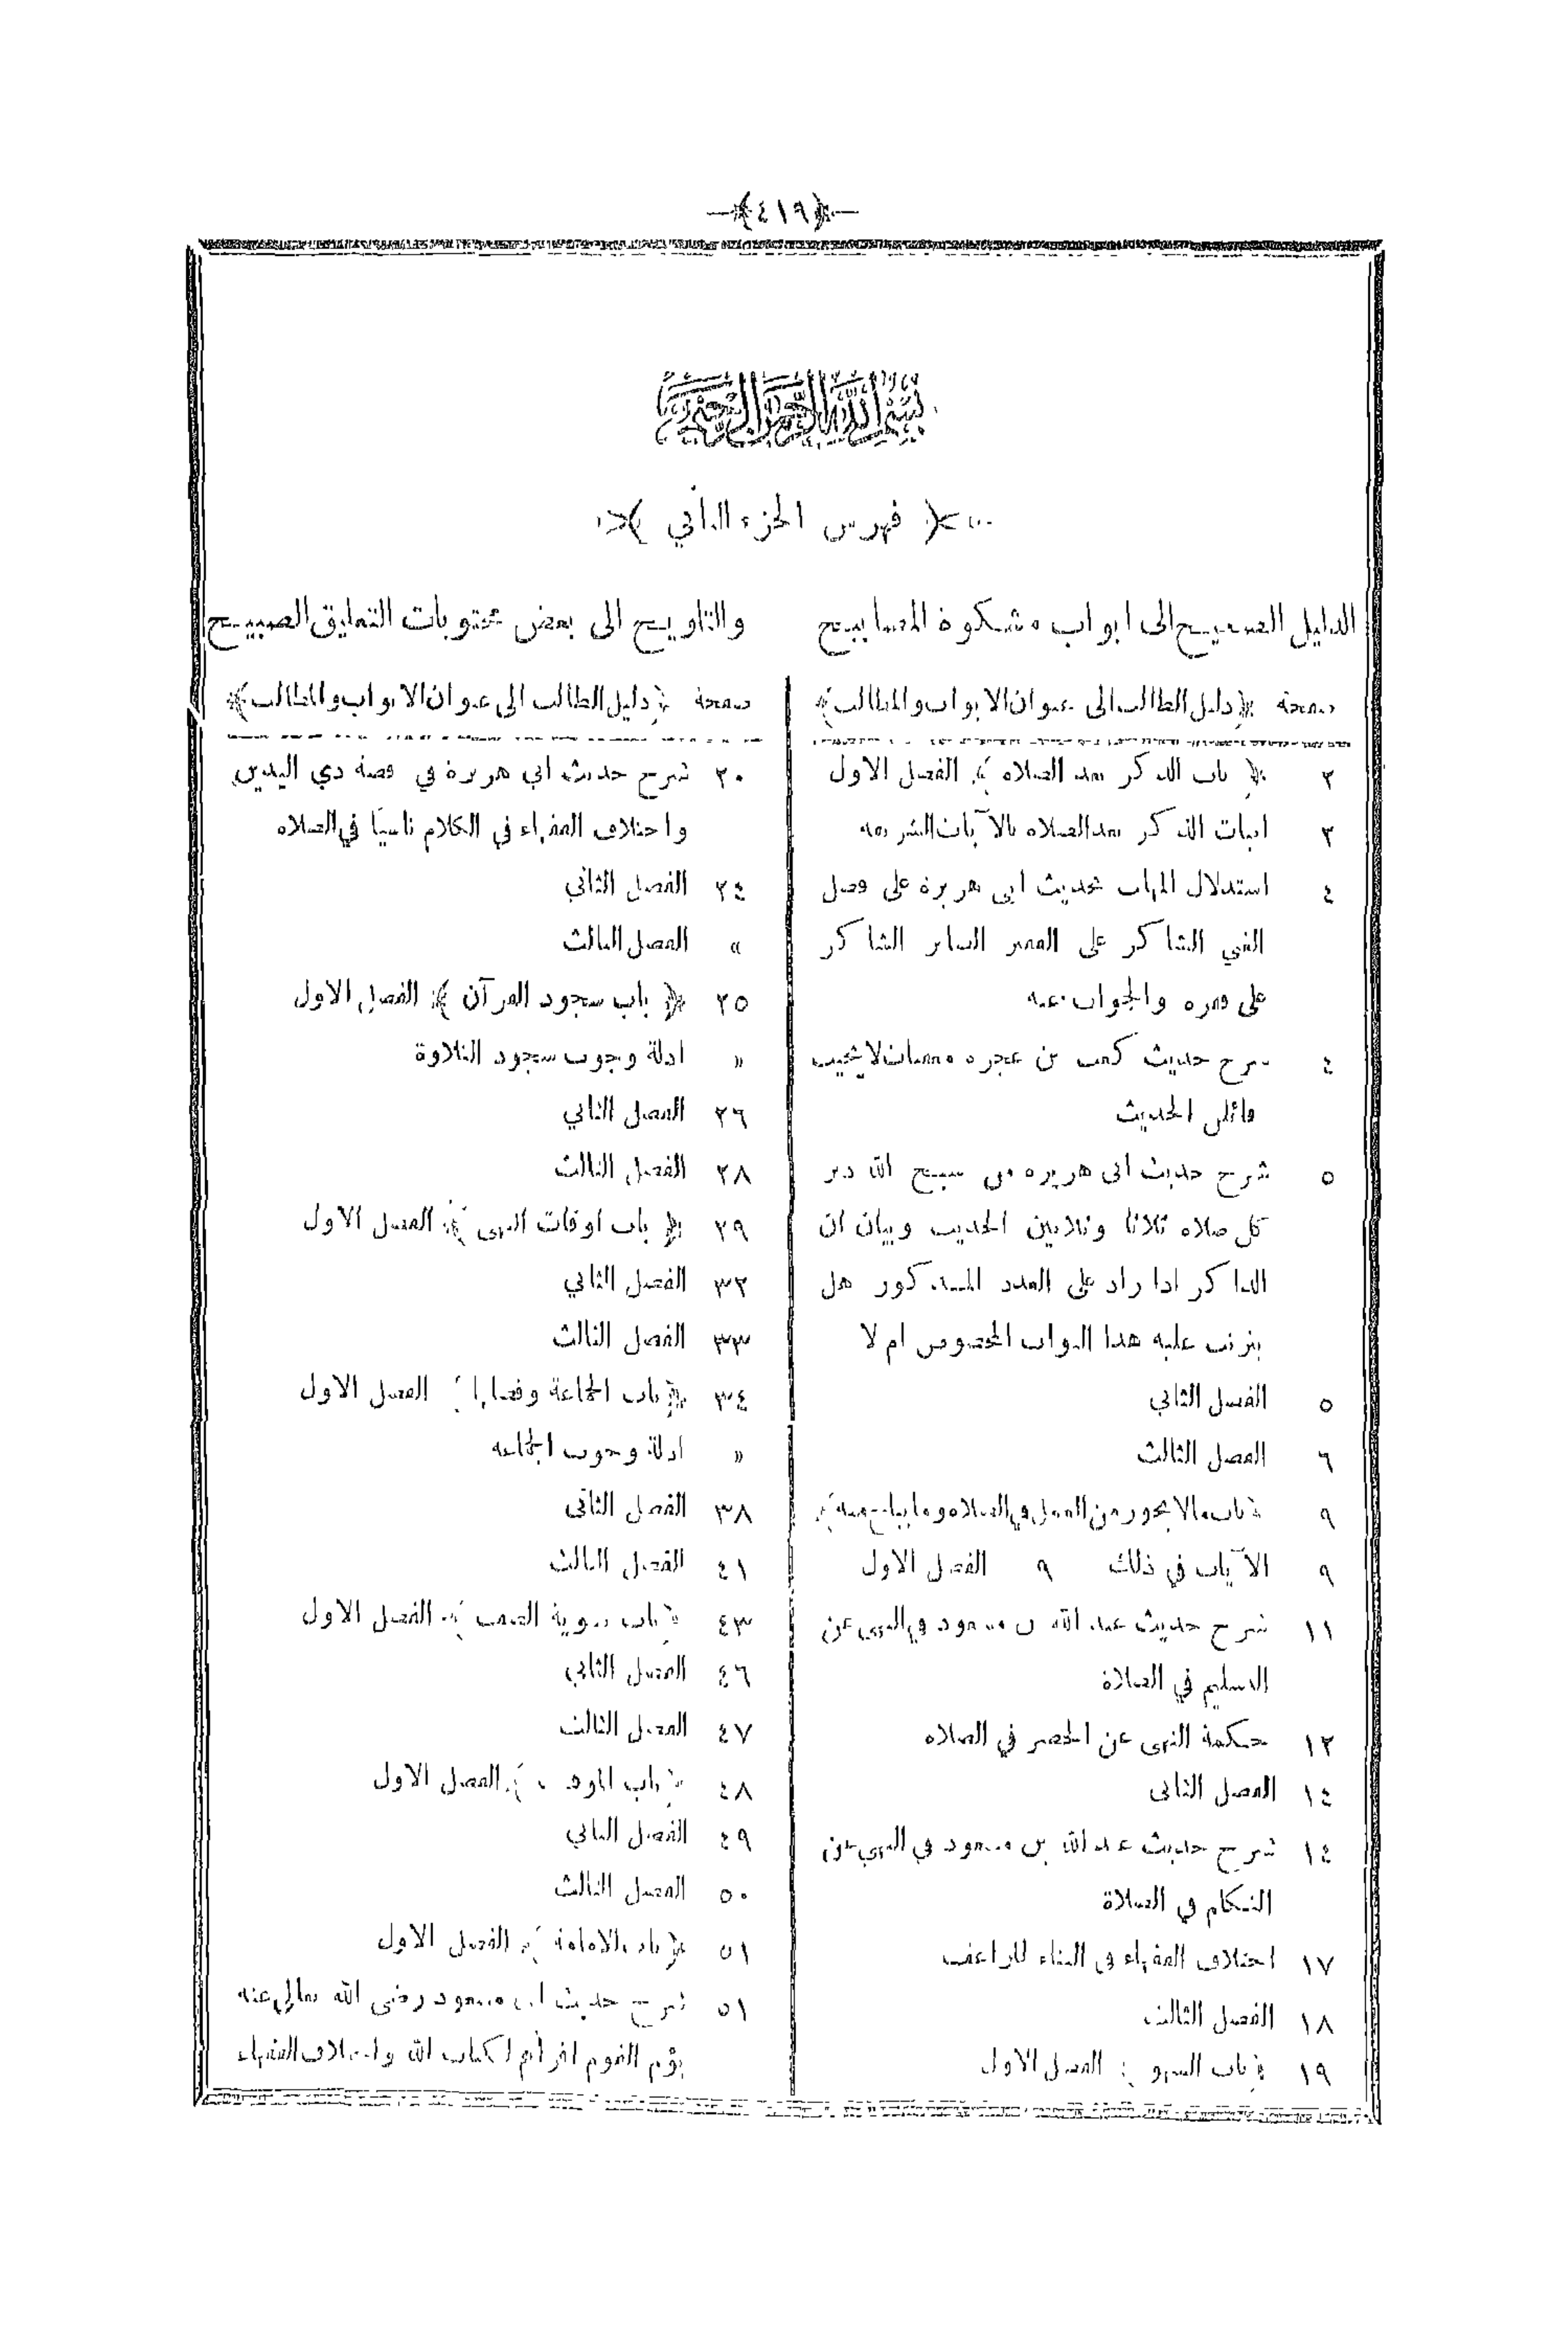 ﴿٤١٩﴾
بسم الله الرحمن الرحيم
﴿ فهرس الجزء الثاني ﴾
الدليل الصحيح الى ابواب مشكوة المصابيح والتلويح الى بعض محتويات التعليق الصبيح
صفحة ﴿دليل الطالب الى عنوان الابواب والمطالب﴾
٢ ﴿ باب الذكر بعد الصلاة ﴾ الفصل الاول
٢ اثبات الذكر بعد الصلاة بالآيات الشريفة
٤ استدلال المهلب بحديث ابي هريرة على فضل
الغني الشاكر على الفقير الصابر الشاكر
على فقره والجواب عنه
٤ شرح حديث كعب بن عجرة معقبات لا يخيب
قائلهن الحديث
٥ شرح حديث ابي هريرة من سبح الله دبر
كل صلاة ثلاثا وثلاثين الحديث وبيان ان
الذاكر اذا زاد على العدد المذكور هل
يترتب عليه هذا الثواب المخصوص ام لا
٥ الفصل الثاني
٦ الفصل الثالث
٩ ﴿باب مالا يجوز من العمل في الصلاة وما يباح منه﴾
٩ الآيات في ذلك ٩ الفصل الاول
١١ شرح حديث عبد الله بن مسعود في النهي عن
التسليم في الصلاة
١٢ حكمة النهى عن الخصر في الصلاة
١٤ الفصل الثاني
١٤ شرح حديث عبد الله بن مسعود في النهي عن
التكلم في الصلاة
١٧ اختلاف الفقهاء في البناء للراعف
١٨ الفصل الثالث
١٩ ﴿باب السهو﴾ الفصل الاول
صفحة ﴿دليل الطالب الى عنوان الابواب والمطالب﴾
٢٠ شرح حديث ابي هريرة في قصة ذي اليدين
واختلاف الفقهاء في الكلام ناسيًا في الصلاة
٢٤ الفصل الثاني
» الفصل الثالث
٢٥ ﴿ باب سجود القرآن ﴾ الفصل الاول
» ادلة وجوب سجود التلاوة
٢٦ الفصل الثاني
٢٨ الفصل الثالث
٢٩ ﴿ باب اوقات النهى ﴾ الفصل الاول
٣٢ الفصل الثاني
٣٣ الفصل الثالث
٣٤ ﴿باب الجماعة وفضلها﴾ الفصل الاول
» ادلة وجوب الجماعة
٣٨ الفصل الثاني
٤١ الفصل الثالث
٤٣ ﴿باب تسوية الصف﴾ الفصل الاول
٤٦ الفصل الثاني
٤٧ الفصل الثالث
٤٨ ﴿باب الموقف﴾ الفصل الاول
٤٩ الفصل الثاني
٥٠ الفصل الثالث
٥١ ﴿باب الامامة﴾ الفصل الاول
٥١ شرح حديث ابي مسعود رضى الله تعالى عنه
يؤم القوم اقرأهم لكتاب الله واختلاف الفقهاء